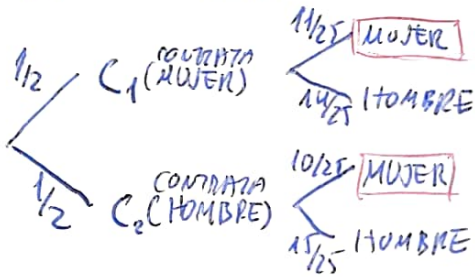 1/2
C₁ CONTRATA
(MUJER)
11/25
MUJER
14/25 HOMBRE
1/2
C₂ CONTRATA
(HOMBRE)
10/25
MUJER
15/25 HOMBRE